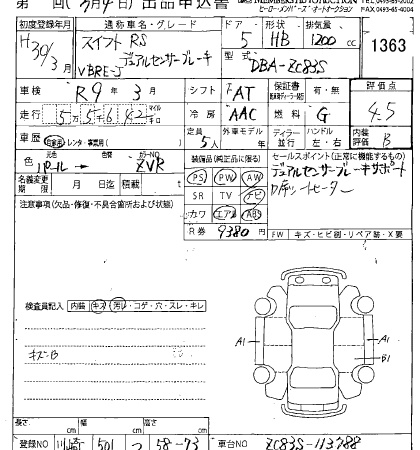 第 回 ( 3月4日) 出品申込書
ヒーロー・メンバーズ・オートオークション
TEL 0493-65-2002
FAX 0493-65-4004
初度登録年月 通称車名・グレード ドア 形状 排気量
H30/3月 スイフト RS 5 HB 1200cc 1363
デュアルセンサーブレーキ
VBRE-J
型式 DBA-ZC83S
車検 R9年3月 シフト FAT 保証書 有・無 評価点
走行 55642 マイル キロ 冷房 AAC 燃料 G 4.5
車歴 自家用・レンタ・事業用( ) 定員 5人 外車モデル 年 ディーラー 並行 ハンドル 左・右 内装評価 B
色 元色 パール → 色 カラーNO ZVR
装備品(純正品に限る) セールスポイント(正常に機能するもの)
名義変更期限 月 日迄 積載 t
PS PW AW デュアルセンサーブレーキサポート
SR TV ナビ D席シートヒーター
カワ エアB ABS
R券 9380円
注意事項(欠品・修復・不具合箇所および状態)
FW キズ・ヒビ割・リペア跡・X要
検査員記入 内装 キズ・汚れ・コゲ・穴・スレ・キレ
キズB
A1 A1
B1
長さ cm 幅 cm 高さ cm
登録NO 川崎 501 つ 58-73 車台NO ZC83S-113788